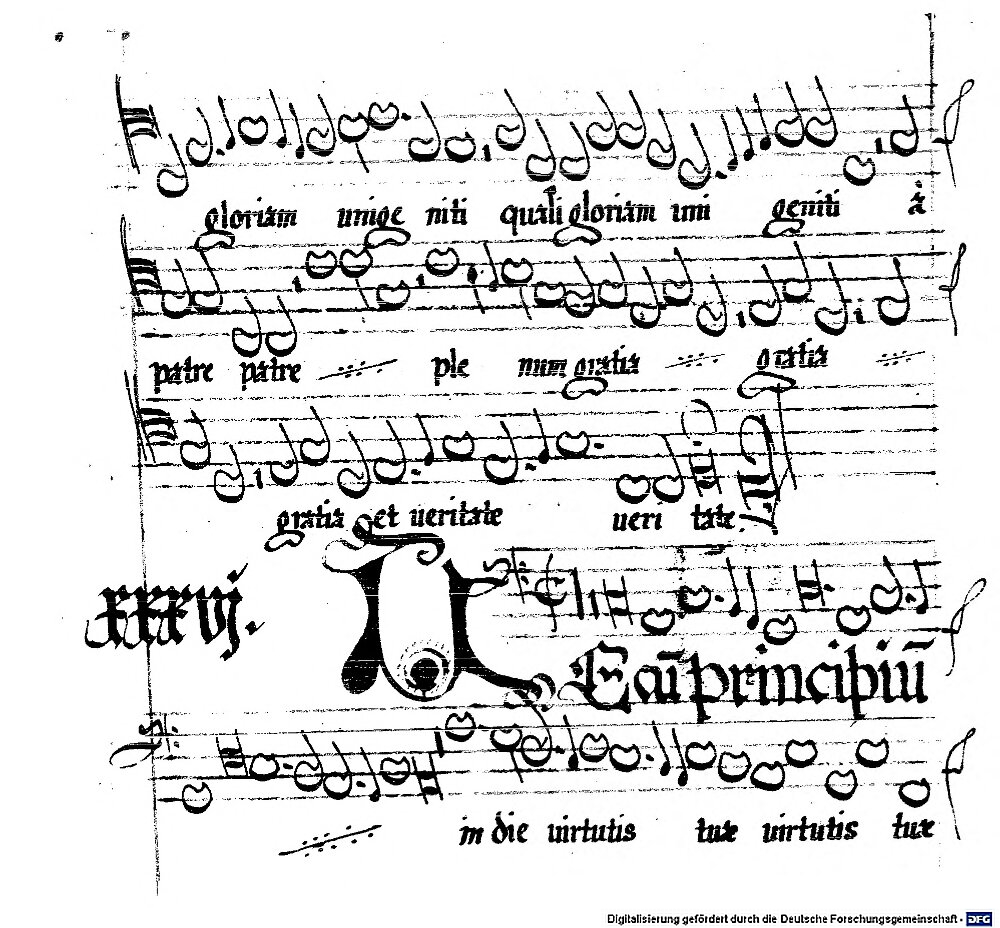 gloriam unige niti quasi gloriam uni geniti a
patre patre ple num gratia gratia
gratia et ueritate ueri tate.
xxxvij.
TEcū principiū
in die uirtutis tuæ uirtutis tuæ
Digitalisierung gefördert durch die Deutsche Forschungsgemeinschaft - DFG